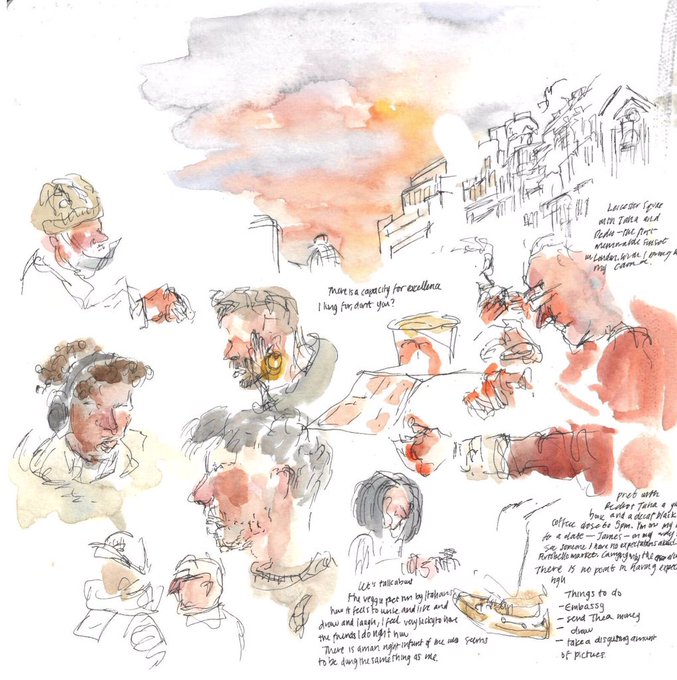 Leicester Sqire
with Taha and
Pedro - the first
memorable sunset
in London
my camera.
There is a capacity for excellence
I long for, don't you?
pret with
Pedro & Taha a
and a decaf black
coffee close to 5pm. I'm on my
to a date - James - on my
someone I have no expectations about.
Portobello market. Carrying my
There is no point in having expec
high
Things to do
- Embassy
- send Thea money
- draw
- take a disgusting amount
of pictures.
Let's talk about
the veggie pret run by Italians
how it feels to write and live and
draw and laugh, I feel very lucky to have
the friends I do right now
There is a man right infront of me who seems
to be doing the same thing as me.